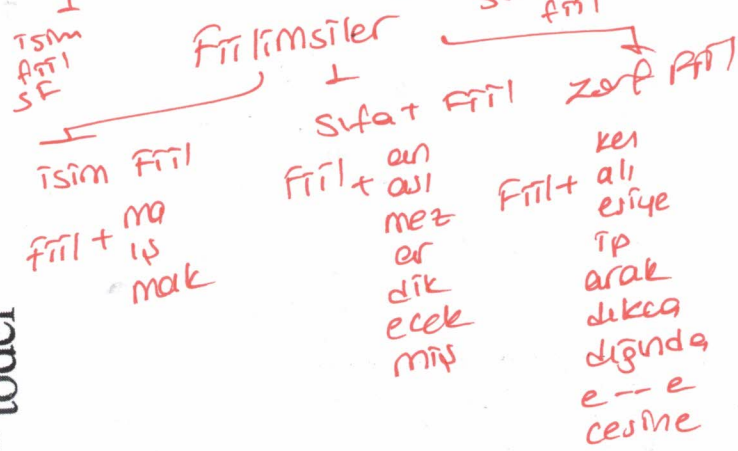 isim
fiil
SF
fiil
Fiilimsiler
isim Fiil
Fiil +
ma
ış
mak
Sıfat Fiil
Fiil +
an
ası
mez
er
dik
ecek
miş
zarf Fiil
Fiil +
ken
alı
esiye
ip
arak
dıkça
dığında
e -- e
cesine